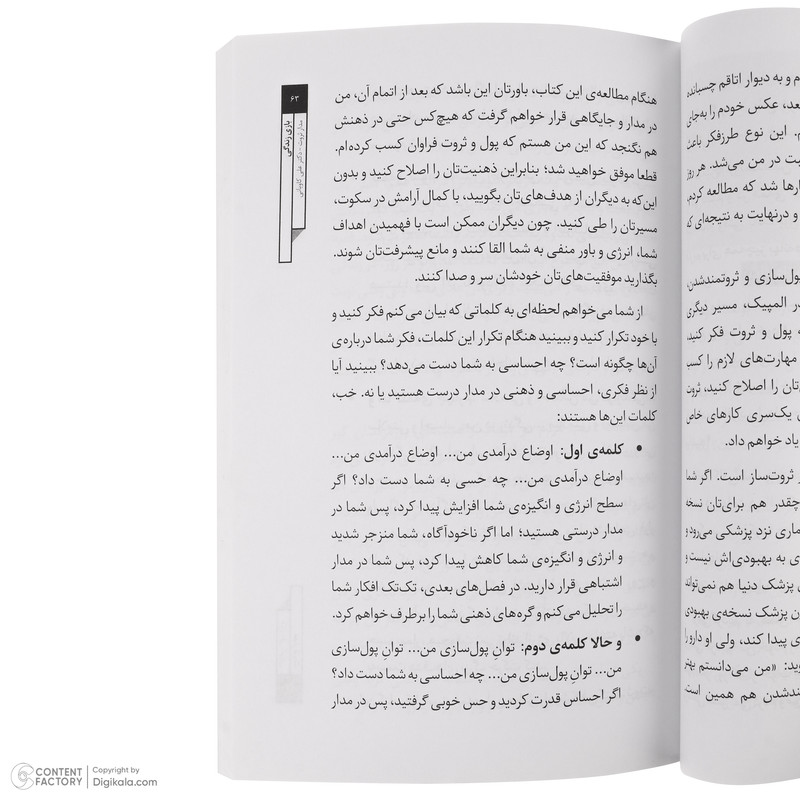 م و به دیوار اتاقم چسبانده
بعد، عکس خودم را به‌جای
م. این نوع طرزفکر باعث
بت در من می‌شد. هر روز
ارها شد که مطالعه کردم،
و درنهایت به نتیجه‌ای که
پول‌سازی و ثروتمندشدن،
ر المپیک، مسیر دیگری
ه پول و ثروت فکر کنید،
مهارت‌های لازم را کسب
تان را اصلاح کنید، ثروت
ی یک‌سری کارهای خاص
یاد خواهم داد.
ر ثروت‌ساز است. اگر شما
چقدر هم برای‌تان نسخه
ماری نزد پزشکی می‌رود و
ی به بهبودی‌اش نیست و
ن پزشک دنیا هم نمی‌تواند
ن پزشک نسخه‌ی بهبودی
ی پیدا کند، ولی او دارو را
وید: «من می‌دانستم بهتر
ندشدن هم همین است.
۶۳
بازی زندگی
مدار ثروت - دکتر علی کاویانی
هنگام مطالعه‌ی این کتاب، باورتان این باشد که بعد از اتمام آن، من
در مدار و جایگاهی قرار خواهم گرفت که هیچ‌کس حتی در ذهنش
هم نگنجد که این من هستم که پول و ثروت فراوان کسب کرده‌ام.
قطعا موفق خواهید شد؛ بنابراین ذهنیت‌تان را اصلاح کنید و بدون
این‌که به دیگران از هدف‌های‌تان بگویید، با کمال آرامش در سکوت،
مسیرتان را طی کنید. چون دیگران ممکن است با فهمیدن اهداف
شما، انرژی و باور منفی به شما القا کنند و مانع پیشرفت‌تان شوند.
بگذارید موفقیت‌های‌تان خودشان سر و صدا کنند.
از شما می‌خواهم لحظه‌ای به کلماتی که بیان می‌کنم فکر کنید و
با خود تکرار کنید و ببینید هنگام تکرار این کلمات، فکر شما درباره‌ی
آن‌ها چگونه است؟ چه احساسی به شما دست می‌دهد؟ ببینید آیا
از نظر فکری، احساسی و ذهنی در مدار درست هستید یا نه. خب،
کلمات این‌ها هستند:
• کلمه‌ی اول: اوضاع درآمدی من... اوضاع درآمدی من...
اوضاع درآمدی من... چه حسی به شما دست داد؟ اگر
سطح انرژی و انگیزه‌ی شما افزایش پیدا کرد، پس شما در
مدار درستی هستید؛ اما اگر ناخودآگاه، شما منزجر شدید
و انرژی و انگیزه‌ی شما کاهش پیدا کرد، پس شما در مدار
اشتباهی قرار دارید. در فصل‌های بعدی، تک‌تک افکار شما
را تحلیل می‌کنم و گره‌های ذهنی شما را برطرف خواهم کرد.
• و حالا کلمه‌ی دوم: توانِ پول‌سازی من... توانِ پول‌سازی
من... توانِ پول‌سازی من... چه احساسی به شما دست داد؟
اگر احساس قدرت کردید و حس خوبی گرفتید، پس در مدار
CONTENT FACTORY
Copyright by
Digikala.com